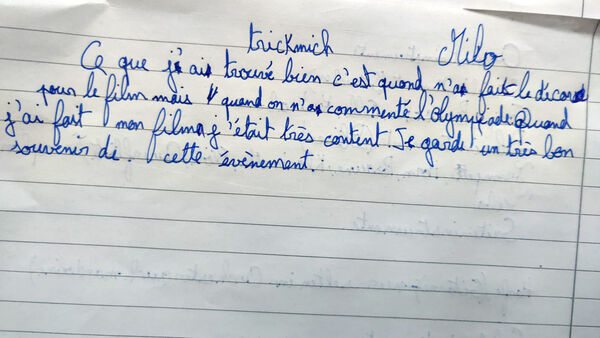 trickmich Milo
Ce que j'ai trouvé bien c'est quand n'a fait le décor
pour le film mais quand on n'a commenté l'olympiade Quand
j'ai fait mon film j'était très content. Je garde un très bon
souvenir di. cette évènement.